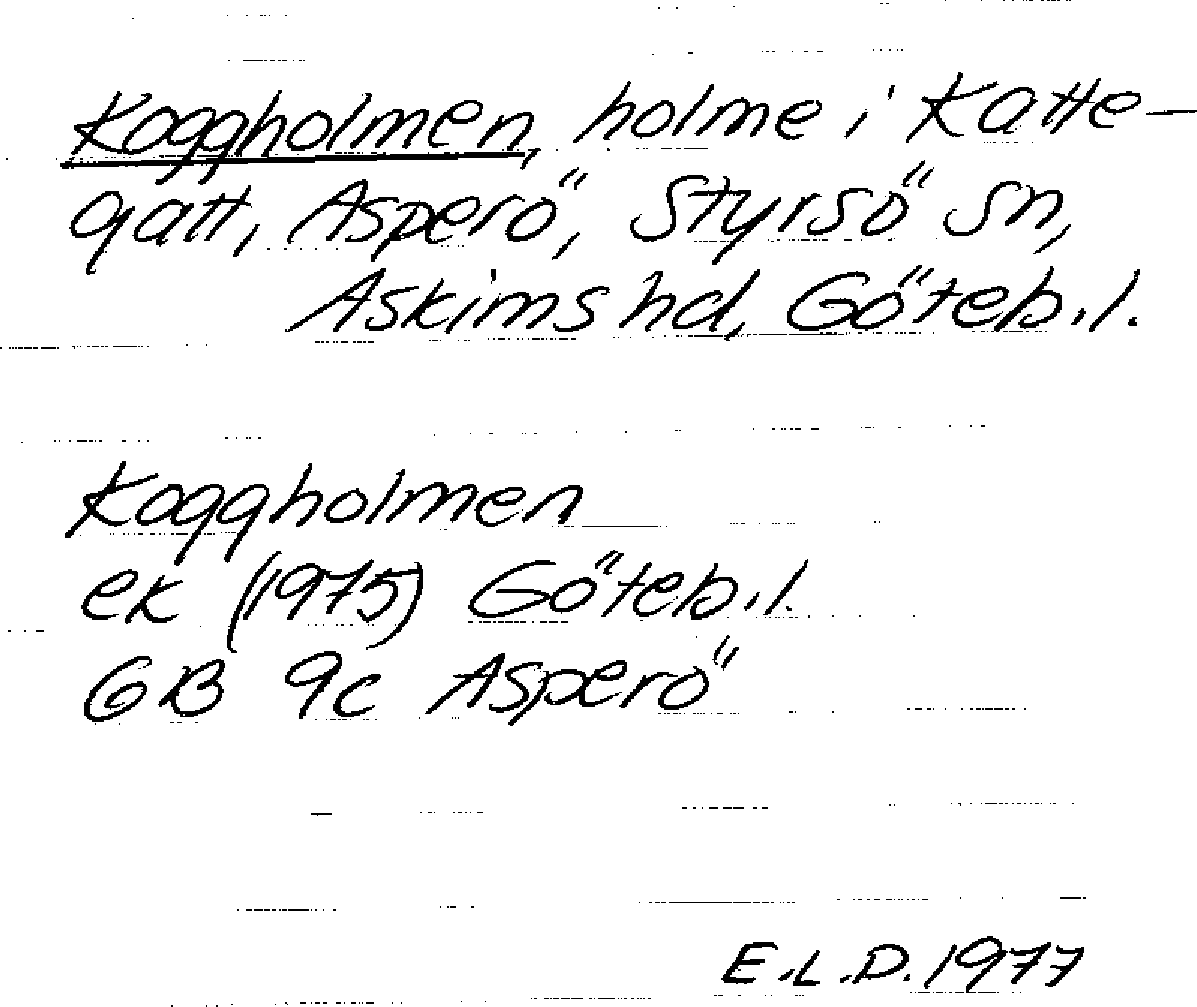 Koggholmen, holme i Katte-
gatt, Asperö, Styrsö sn,
Askims hd, Göteb.l.
Koggholmen
ek (1975) Göteb.l.
GB 9c Asperö
E.L.D. 1977